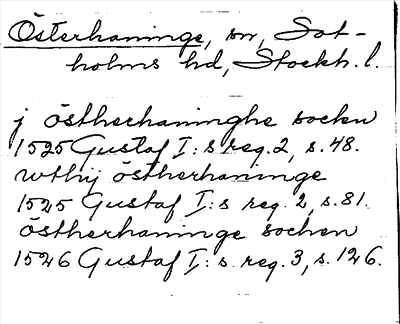 Österhaninge, sn, Sot-
holms hd, Stockh. l.
j östherhaninghe socken
1525 Gustaf I:s reg. 2, s. 48.
wthij östherhaninge
1525 Gustaf I:s reg. 2, s. 81.
östherhaninge sochen
1526 Gustaf I:s reg. 3, s. 126.